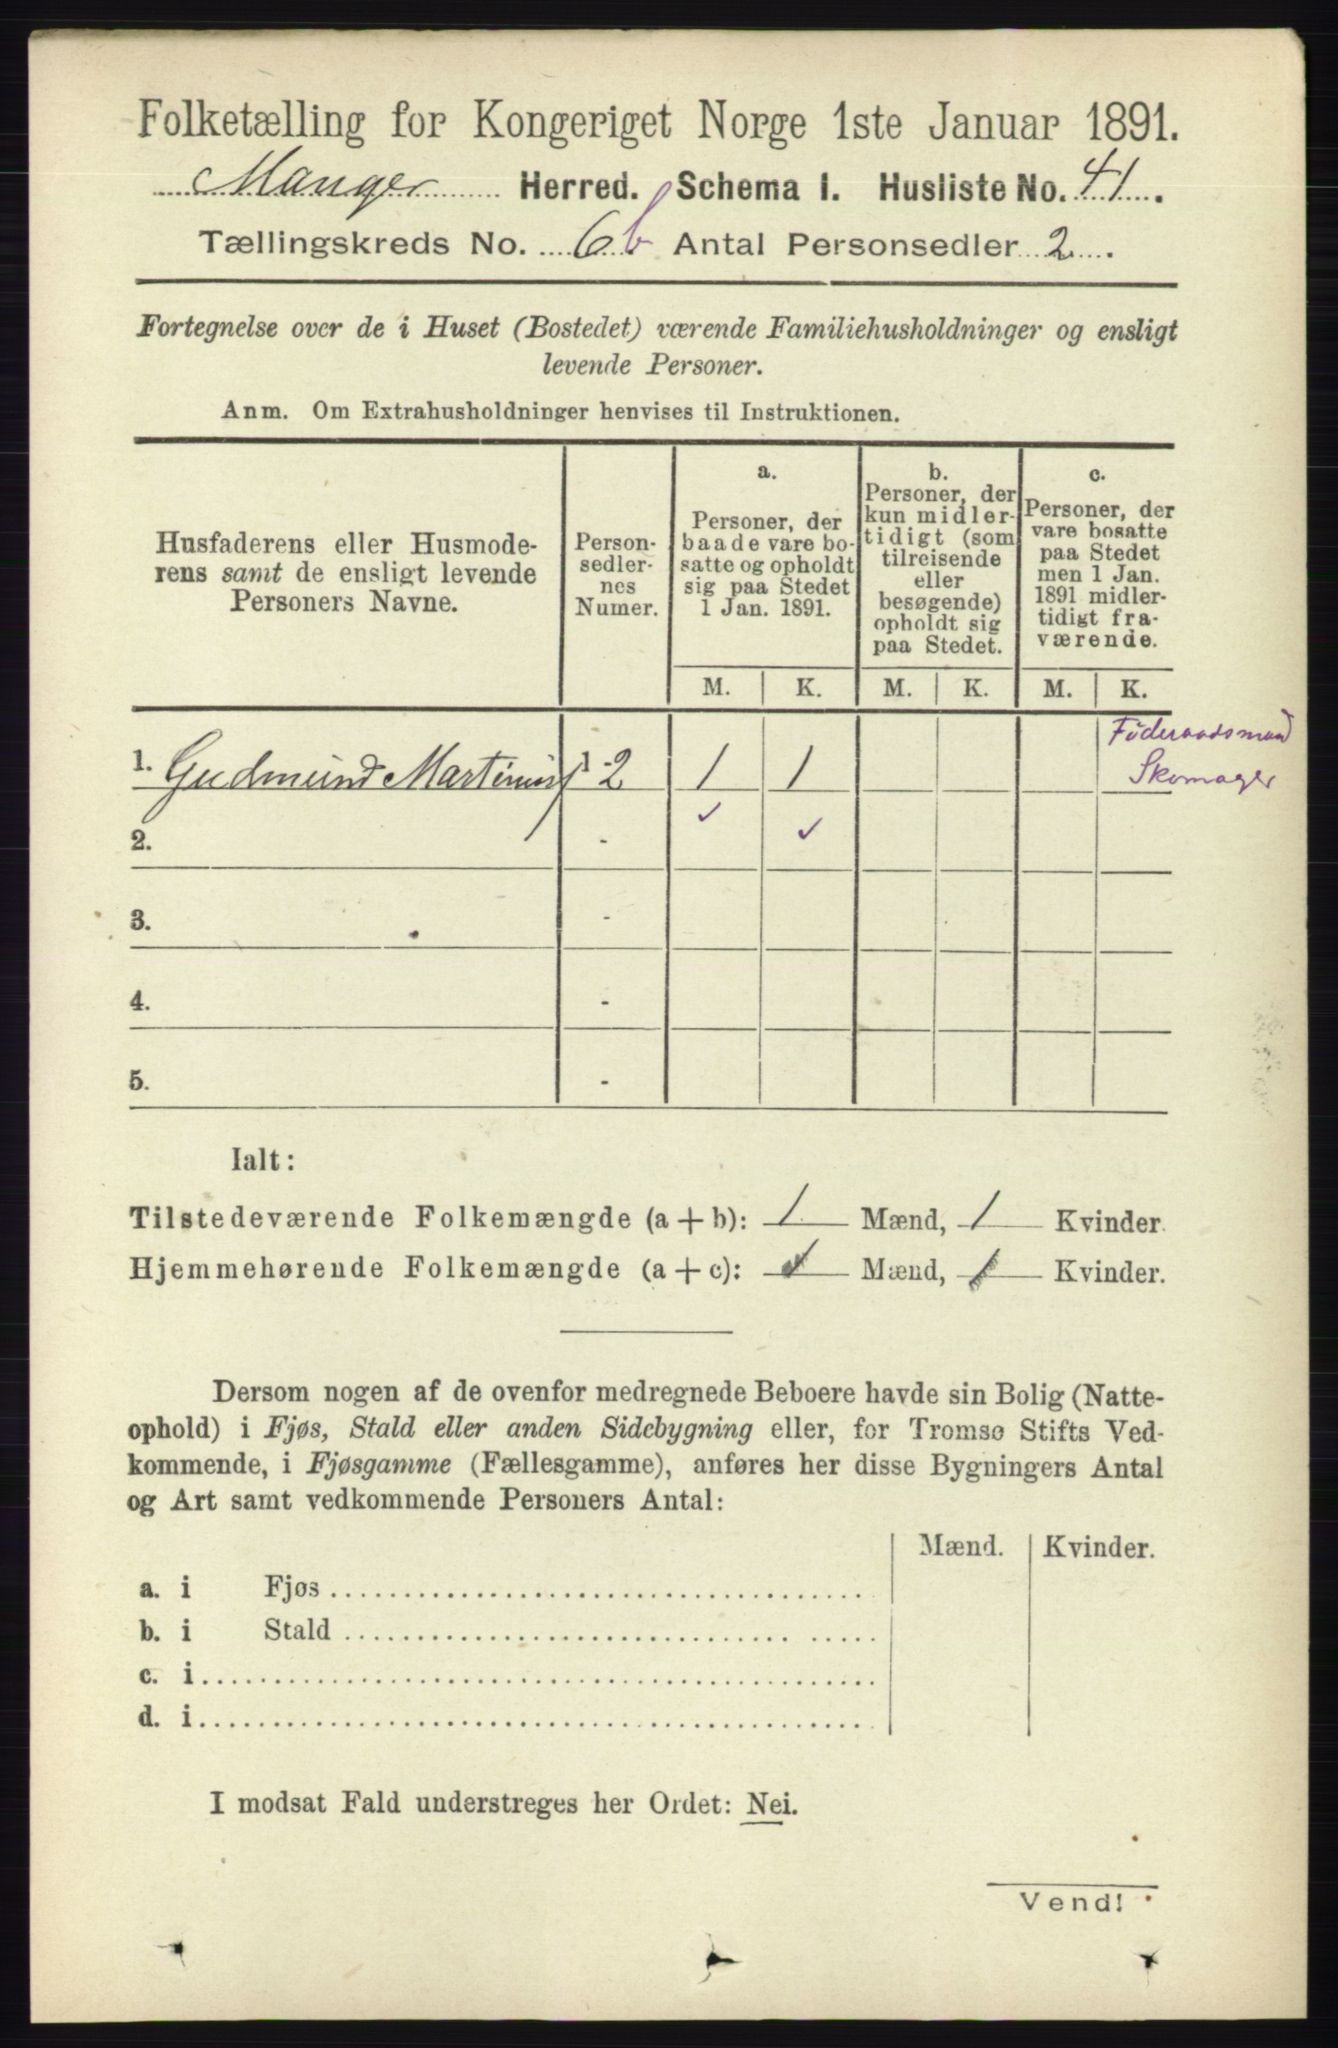 Folketælling for Kongeriget Norge 1ste Januar 1891.
Manger Herred. Schema I. Husliste No. 41.
Tællingskreds No. 6b Antal Personsedler 2.
Fortegnelse over de i Huset (Bostedet) værende Familiehusholdninger og ensligt
levende Personer.
Anm. Om Extrahusholdninger henvises til Instruktionen.
Husfaderens eller Husmode-
rens samt de ensligt levende
Personers Navne.
Person-
sedler-
nes
Numer.
a.
Personer, der
baade vare bo-
satte og opholdt
sig paa Stedet
1 Jan. 1891.
b.
Personer, der
kun midler-
tidigt (som
tilreisende
eller
besøgende)
opholdt sig
paa Stedet.
c.
Personer, der
vare bosatte
paa Stedet
men 1 Jan.
1891 midler-
tidigt fra-
værende.
M. K. M. K. M. K.
Föderaadsmand
1. Gudmund Martinius 1-2 1 1 Skomager
2. - ✓ ✓
3. -
4. -
5. -
Ialt:
Tilstedeværende Folkemængde (a + b): 1 Mænd, 1 Kvinder.
Hjemmehørende Folkemængde (a + c): 1 Mænd, 1 Kvinder.
Dersom nogen af de ovenfor medregnede Beboere havde sin Bolig (Natte-
ophold) i Fjøs, Stald eller anden Sidebygning eller, for Tromsø Stifts Ved-
kommende, i Fjøsgamme (Fællesgamme), anføres her disse Bygningers Antal
og Art samt vedkommende Personers Antal:
Mænd. Kvinder.
a. i Fjøs
b. i Stald
c. i
d. i
I modsat Fald understreges her Ordet: Nei.
Vend!